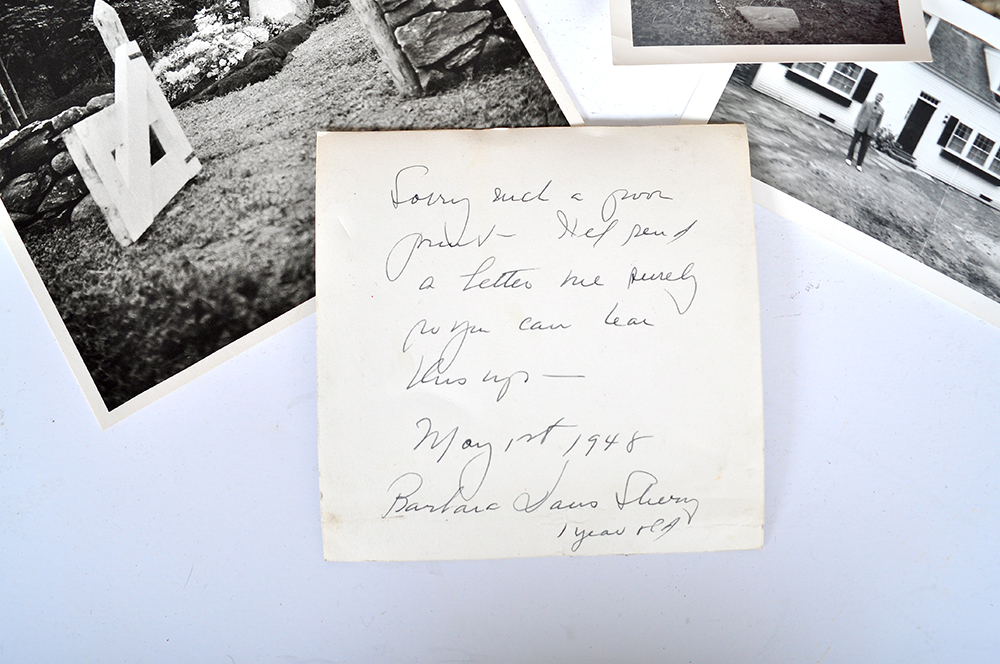 Sorry such a poor
print I'll send
a letter me surely
so you can tear
this up —
May 1st 1948
Barbara Sherry
1 year old